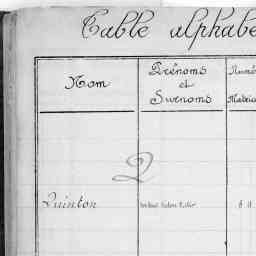 Table alphabé
Nom
Prénoms
et
Surnoms
Numé
Matric
Q
Quinton